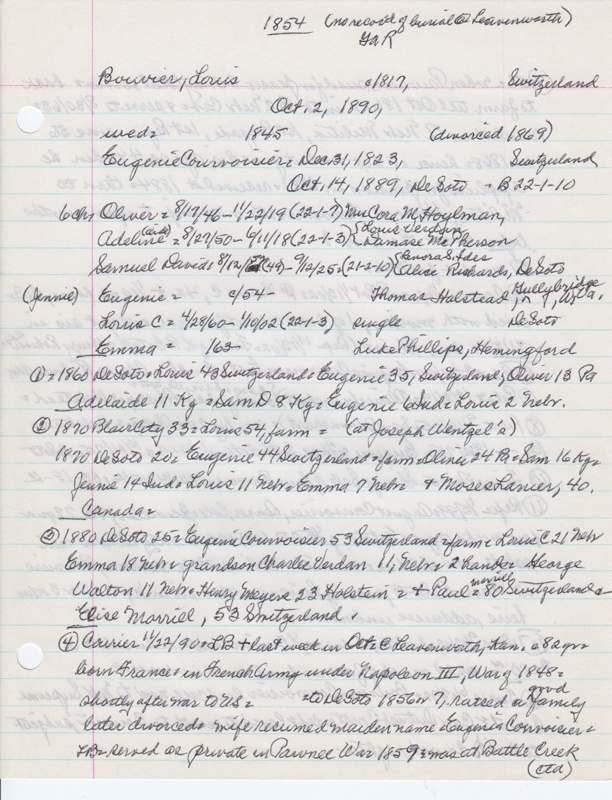 1854 (no record of burial at Leavenworth)
GaR
Bouvier, Louis c1817, Switzerland
Oct. 2, 1890,
wed = 1845 (divorced 1869)
Eugenie Courvoisier = Dec. 31, 1823, Switzerland
Oct. 14, 1889, DeSoto - B 22-1-10
6 chn Oliver = 8/17/46 - 11/22/19 (22-1-7) Cora M. Hoylman,
Adeline = 8/27/50 - 6/11/18 (22-1-3) {Louis Verdan {Damase McPherson
Samuel David = 8/12/ (49) - 9/12/25 = (21-2-10) {Alice Richards, DeSoto
(Jennie) Eugenie = c/54 - Thomas Halstead, W. Va.
Louis C = 4/28/60 - 1/10/02 (22-1-3) single DeSoto
Emma = /63 - Luke Phillips, Hemingford
① = 1860 DeSoto = Louis 43 Switzerland = Eugenie 35, Switzerland, Oliver 13 Pa
Adelaide 11 Ky = Sam D 8 Ky = Eugenie 6 Ind = Louis 2 Nebr.
② 1870 Blair City 33 = Louis 54, farm = (at Joseph Wentzel's)
1870 DeSoto 20 = Eugenie 44 Switzerland = farm = Oliver 24 Pa = Sam 16 Ky =
Jennie 14 Ind = Louis 11 Nebr = Emma 7 Nebr = + Moses Lanier, 40.
Canada =
③ 1880 DeSoto 25 = Eugenie Courvoisier 53 Switzerland = farm = Louis C 21 Nebr
Emma 18 Nebr = grandson Charlie Verdan 11, Nebr = 2 hands = George
Walton 11 Nebr = Henry 23 Holstein = + Paul = 80 Switzerland =
Elise Morriel, 53 Switzerland.
④ Courier 11/22/90 = LB + last week in Oct = C Leavenworth, Kan. = 82 yr =
born France = in French Army under Napoleon III, War of 1848 =
shortly after war to US = to DeSoto 1856 or 7, raised a good family
later divorced = wife resumed maiden name = Eugenia Courvoisier =
LB = served as private in Pawnee War 1859 = was at Battle Creek
(ctd)